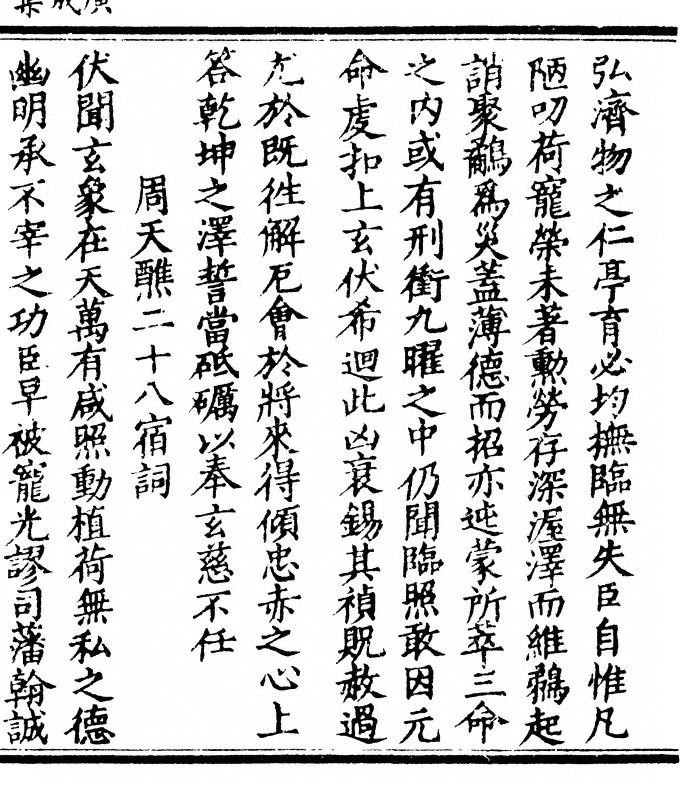 廣成集
弘濟物之仁亭育必均撫臨無失臣自惟凡
陋叨荷寵榮未著勲勞存深渥澤而維鵜起
誚聚鷸爲災蓋薄德而招亦迍蒙所萃三命
之内或有刑衝九曜之中仍聞臨照敢因元
命虔扣上玄伏希迴此凶衰錫其禎貺赦過
尤於既徃解厄會於將來得傾忠赤之心上
答乾坤之澤誓當砥礪以奉玄慈不任
周天醮二十八宿詞
伏聞玄象在天萬有咸照動植荷無私之德
幽明承不宰之功臣早被寵光謬司藩翰誠